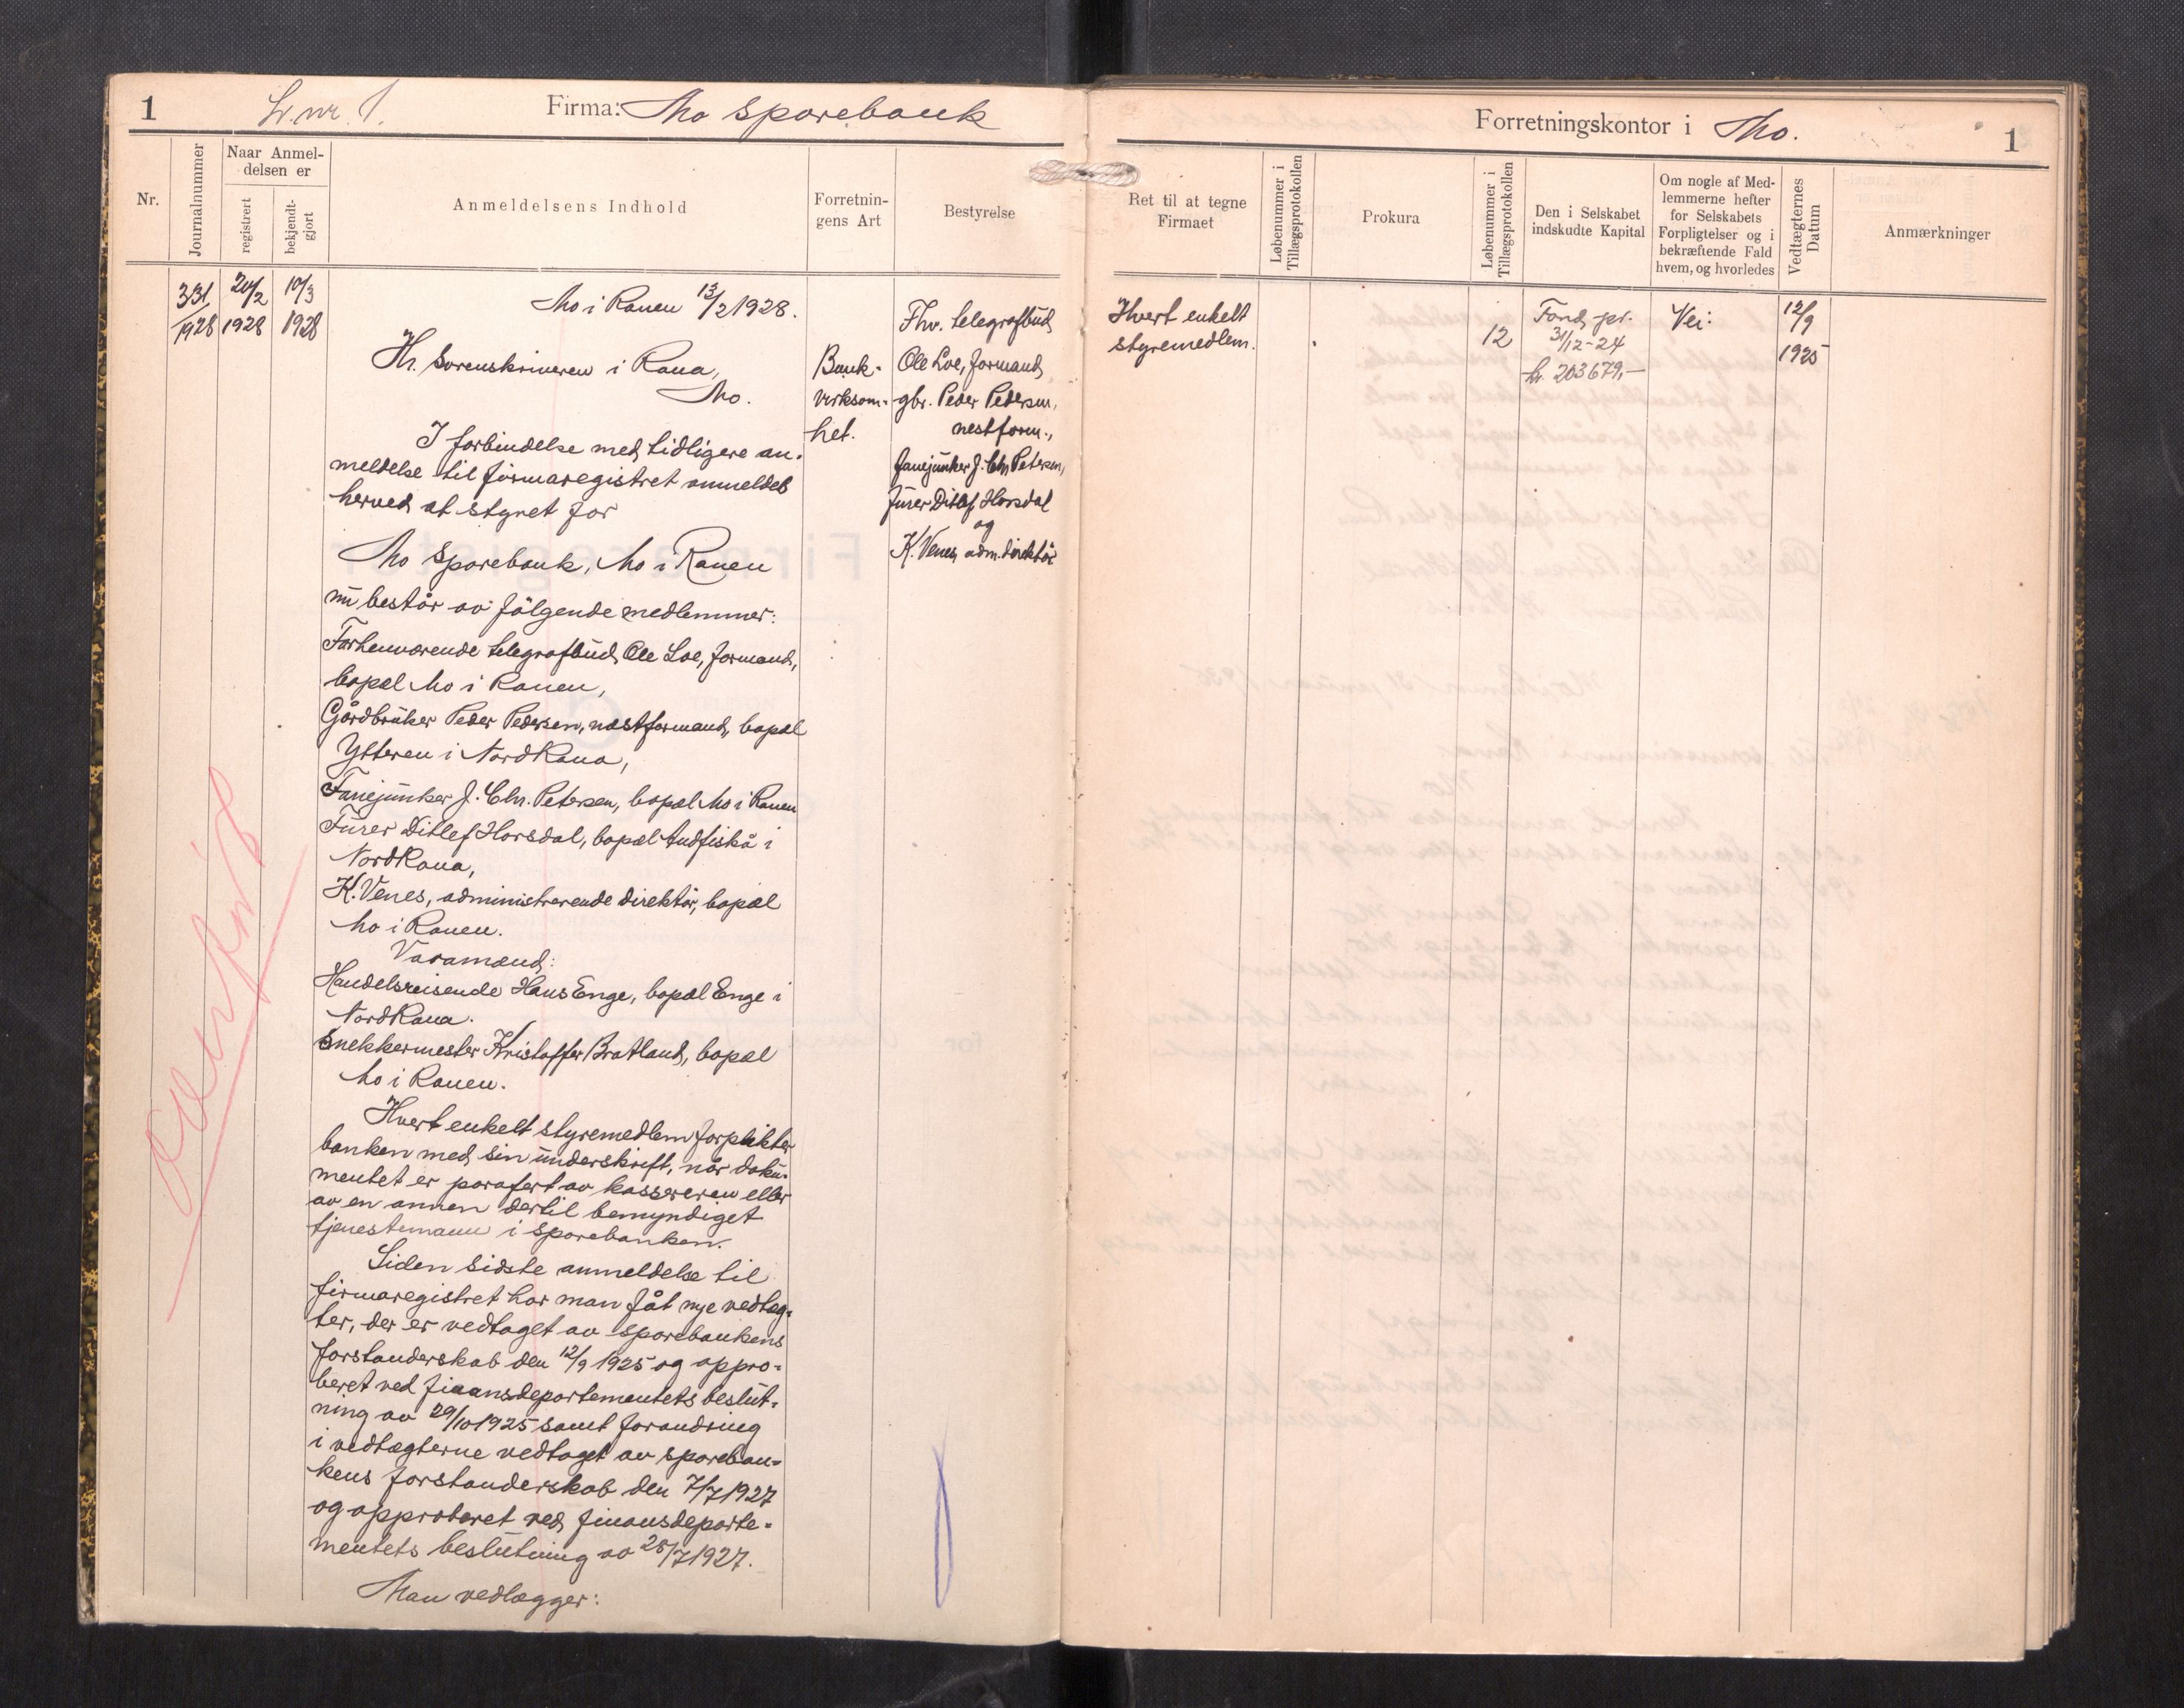 1
L.nr. 1.
Firma: Mo Sparebank
Nr.
Journalnummer
Naar Anmel-
delsen er
registrert
bekjendt-
gjort
Anmeldelsens Indhold
Forretnin-
gens Art
Bestyrelse
331/1928
20/2 1928
10/3 1928
Mo i Ranen 13/2 1928.
Hr. Sorenskriveren i Rana,
Mo.
I forbindelse med tidligere an-
meldelse til firmaregistret anmeldes
herved at styret for
Mo Sparebank, Mo i Ranen
nu består av følgende medlemmer:
Forhenværende telegrafbud Ole Loe, formand,
bopæl Mo i Ranen,
Gårdbruker Peder Pedersen, næstformand, bopæl
Ytteren i Nord Rana,
Fanejunker J. Chr. Petersen, bopæl Mo i Ranen
Furer Ditlef Horsdal, bopæl Audfiskå i
Nord Rana,
K. Venes, administrerende direktør, bopæl
Mo i Ranen.
Varamænd:
Handelsreisende Hans Enge, bopæl Enge i
Nord Rana.
Snekkermester Kristoffer Bratland, bopæl
Mo i Ranen.
Hvert enkelt styremedlem forplikter
banken med sin underskrift, når doku-
mentet er parafert av kassereren eller
av en annen dertil bemyndiget
tjenestemann i sparebanken.
Siden sidste anmeldelse til
firmaregistret har man fåt nye vedtæg-
ter, der er vedtaget av sparebankens
forstanderskab den 12/9 1925 og appro-
beret ved finansdepartementets beslut-
ning av 29/10 1925 samt forandring
i vedtægterne vedtaget av spareban-
kens forstanderskab den 7/7 1927
og approberet ved finansdeparte-
mentets beslutning av 28/7 1927.
Man vedlægger:
Bank-
virksom-
het.
Fhv. telegrafbud
Ole Loe, formand
gbr. Peder Pedersen,
nestform.,
fanejunker J. Chr. Petersen,
furer Ditlef Horsdal
og
K. Venes, adm. direktør
overført
Forretningskontor i Mo.
1
Ret til at tegne
Firmaet
Løbenummer i
Tillægsprotokollen
Prokura
Løbenummer i
Tillægsprotokollen
Den i Selskabet
indskudte Kapital
Om nogle af Med-
lemmerne hefter
for Selskabets
Forpligtelser og i
bekræftende Fald
hvem, og hvorledes
Vedtægternes
Datum
Anmærkninger
Hvert enkelt
styremedlem.
12
Fond pr.
31/12-24
kr. 203679,-
Nei.
12/9
1925